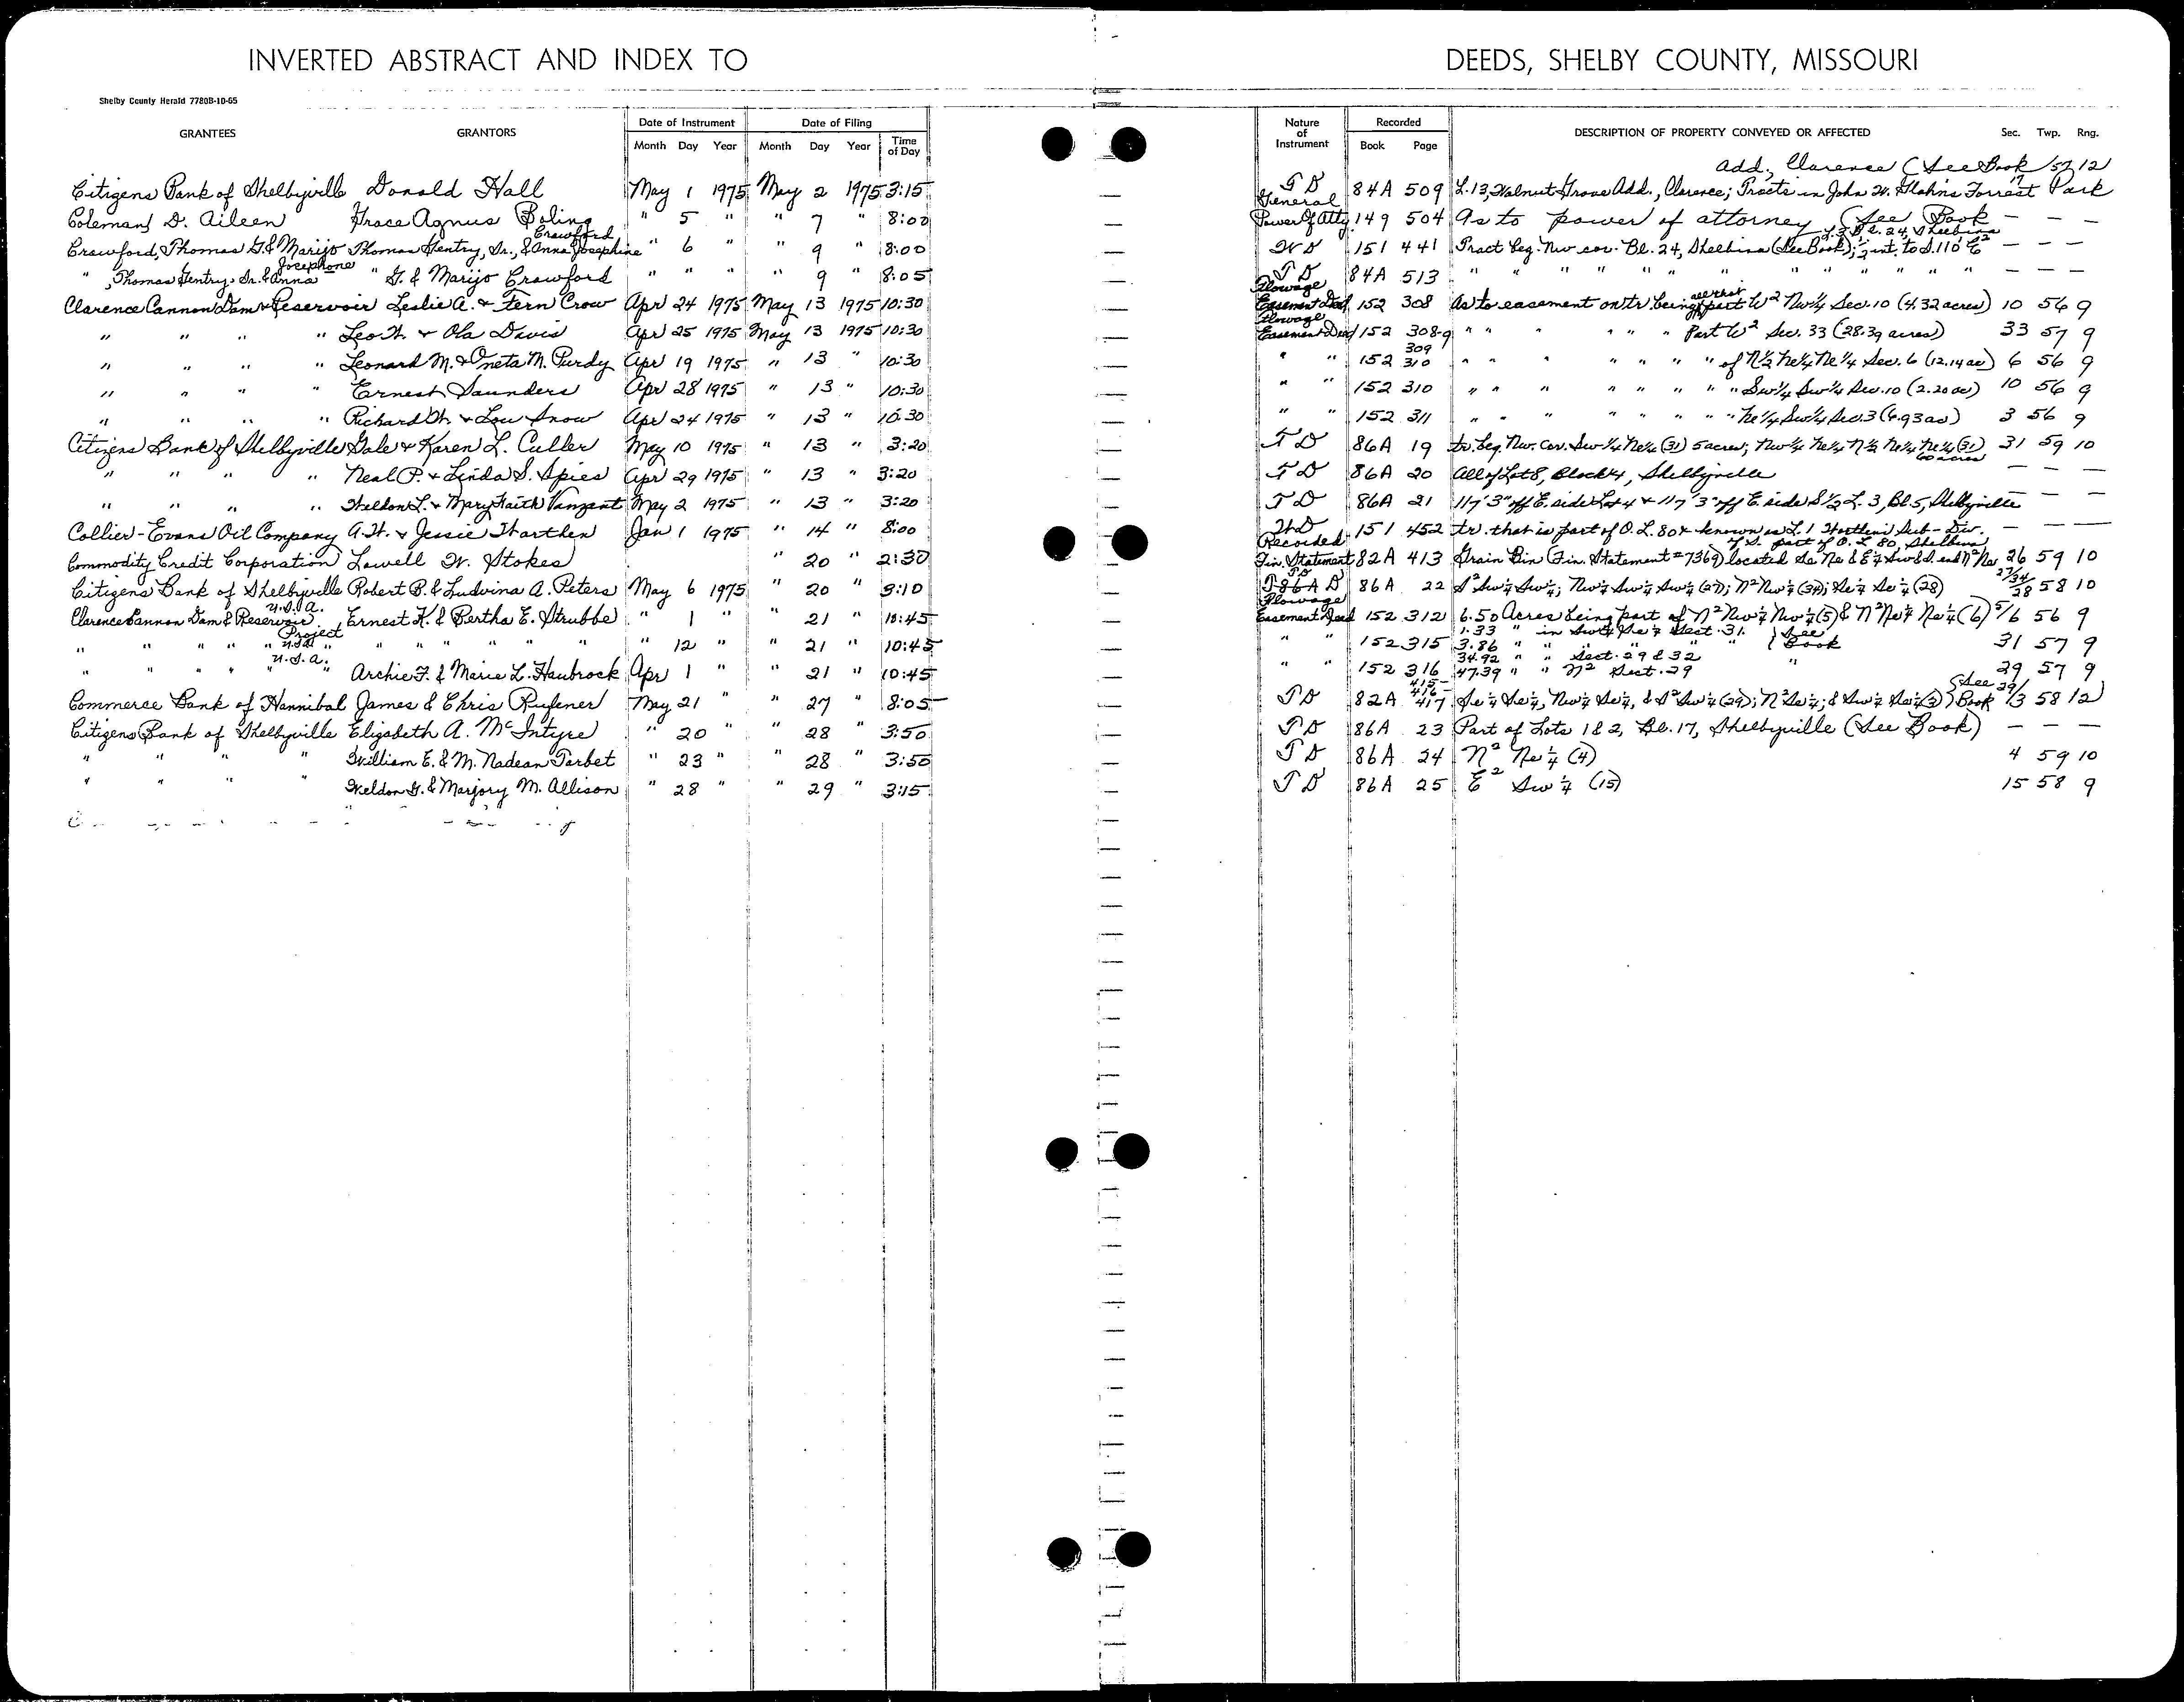 INVERTED ABSTRACT AND INDEX TO DEEDS, SHELBY COUNTY, MISSOURI
Shelby County Herald 7780B-10-65
GRANTEES GRANTORS Date of Instrument Date of Filing Nature of Instrument Recorded DESCRIPTION OF PROPERTY CONVEYED OR AFFECTED Sec. Twp. Rng.
Month Day Year Month Day Year Time of Day Book Page
Add., Clarence (See Book 57 12
Citizens Bank of Shelbyville Donald Hall May 1 1975 May 2 1975 3:15 T D 84A 509 L. 13, Walnut Grove Add., Clarence; Tracts in John W. Forrest Park 17
Coleman, D. Aileen Grace Agnus Boling " 5 " " 7 " 8:00 General Power Of Atty. 149 504 As to power of attorney (See Book — — —
Crawford, Thomas G. & Marijo Thomas Gentry, Sr., & Anna Josephine Crawford " 6 " " 9 " 8:00 W D 151 441 Tract beg. Nw cor. Bl. 24, Shelbina (See Book); int. to S. 110 E² L 3 Bl. 24, Shelbina — — —
" , Thomas Gentry, Sr. & Anna Josephone " G. & Marijo Crawford " " " " 9 " 8:05 T D 84A 513 " " " " " " " " " " — — —
Clarence Cannon Dam & Reservoir Leslie A. & Fern Crow Apr 24 1975 May 13 1975 10:30 Flowage Easement Deed 152 308 As to easement on tr. being all that part W² Nw¼ Sec. 10 (4.32 acres) 10 56 9
" " " " Leo H. & Ola Davis Apr 25 1975 May 13 1975 10:30 Flowage Easement Deed 152 308-9 " " " " " " Part W² Sec. 33 (28.39 acres) 33 57 9
" " " " Leonard M. & Oneta M. Purdy Apr 19 1975 " 13 " 10:30 " " 152 309 310 " " " " " " " of N½ Ne¼ Ne¼ Sec. 6 (12.14 ac) 6 56 9
" " " " Ernest Saunders Apr 28 1975 " 13 " 10:30 " " 152 310 " " " " " " " " Sw¼ Sw¼ Sec. 10 (2.20 ac) 10 56 9
" " " " Richard W. & Lou Snow Apr 24 1975 " 13 " 10:30 " " 152 311 " " " " " " " " Ne¼ Sw¼ Sec. 3 (6.93 ac) 3 56 9
Citizens Bank of Shelbyville Gale & Karen L. Culler May 10 1975 " 13 " 3:20 T D 86A 19 tr. beg. Nw. Cor. Sw¼ Ne¼ (31) 5 acres; Nw¼ Ne¼ N½ Ne¼ Ne¼ (31) 60 acres 31 59 10
" " " " Neal P. & Linda S. Spies Apr 29 1975 " 13 " 3:20 T D 86A 20 All of Lot 8, Block 4, Shelbyville — — —
" " " " Weldon L. & Mary Faith Vanzant May 2 1975 " 13 " 3:20 T D 86A 21 117' 3" off E. side Lot 4 & 117' 3" off E. side S½ L. 3, Bl. 5, Shelbyville — — —
Collier-Evans Oil Company A. W. & Jessie Harthen Jan 1 1975 " 14 " 8:00 W D 151 452 tr. that is part of O. L. 80 & known as L. 1 Sub-Div. of S. part of O. L. 80, Shelbina — —
Commodity Credit Corporation Lowell W. Stokes " 20 " 2:30 Recorded Fin. Statement 82A 413 Grain Bin (Fin. Statement #7369) located Se Ne & E½ Sw & S. end N² Ne 26 59 10
Citizens Bank of Shelbyville Robert B. & Ludvina A. Peters May 6 1975 " 20 " 3:10 T D 86A 22 S² Sw¼ Sw¼; Nw¼ Sw¼ Sw¼ (27); N² Nw¼ (34); Se¼ Se¼ (28) 27/34/28 58 10
Clarence Cannon Dam & Reservoir Project U.S.A. Ernest K. & Bertha E. Strubbe " 1 " " 21 " 10:45 Flowage Easement Deed 152 312 6.50 Acres being part of N² Nw¼ Nw¼ (5) & N² Ne¼ Ne¼ (6) 5/6 56 9
" " " " " U.S.A. " " " " " " 12 " " 21 " 10:45 " " 152 315 1.33 " in Sw¼ Se¼ Sect. 31. 3.86 " " Sect. 29 & 32 (See Book 31 57 9
" " " " " U.S.A. " Archie F. & Marie L. Haubrock Apr 1 " " 21 " 10:45 " " 152 316 34.92 47.39 " " N² Sect. 29 " 29 57 9
Commerce Bank of Hannibal James & Chris Rufener May 21 " " 27 " 8:05 T D 82A 415-416-417 Se¼ Se¼, Nw¼ Se¼, & S² Sw¼ (29); N² Se¼; & Sw¼ Se¼ (3) (See Book 29/3 58 12
Citizens Bank of Shelbyville Elizabeth A. McIntyre " 20 " " 28 " 3:50 T D 86A 23 Part of Lots 1 & 2, Bl. 17, Shelbyville (See Book) — — —
" " " " William E. & M. Nadean Tarbet " 23 " " 28 " 3:50 T D 86A 24 N² Ne¼ (4) 4 59 10
" " " " Weldon G. & Marjory M. Allison " 28 " " 29 " 3:15 T D 86A 25 E² Sw¼ (15) 15 58 9